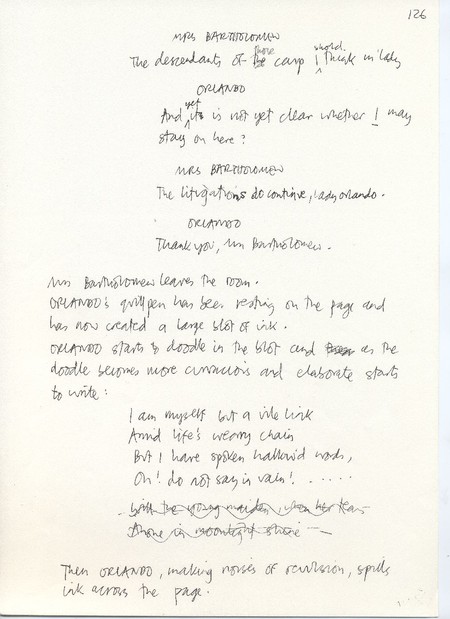 126
MRS BARTHOLOMEW
The descendants of those carp I should think m'lady
ORLANDO
And yet it is not yet clear whether I may
stay on here?
MRS BARTHOLOMEW
The litigations do continue, Lady Orlando.
ORLANDO
Thank you, Mrs Bartholomew.
Mrs Bartholomew leaves the room.
ORLANDO's quill pen has been resting on the page and
has now created a large blot of ink.
ORLANDO starts to doodle in the blot and as the
doodle becomes more curvacious and elaborate starts
to write:
I am myself but a vile link
Amid life's weary chain
But I have spoken hallow'd words,
Oh! do not say in vain! . . . . . .
With the young maiden, when her tears
Alone in moonlight shine –
Then ORLANDO, making noises of revulsion, spills
ink across the page.